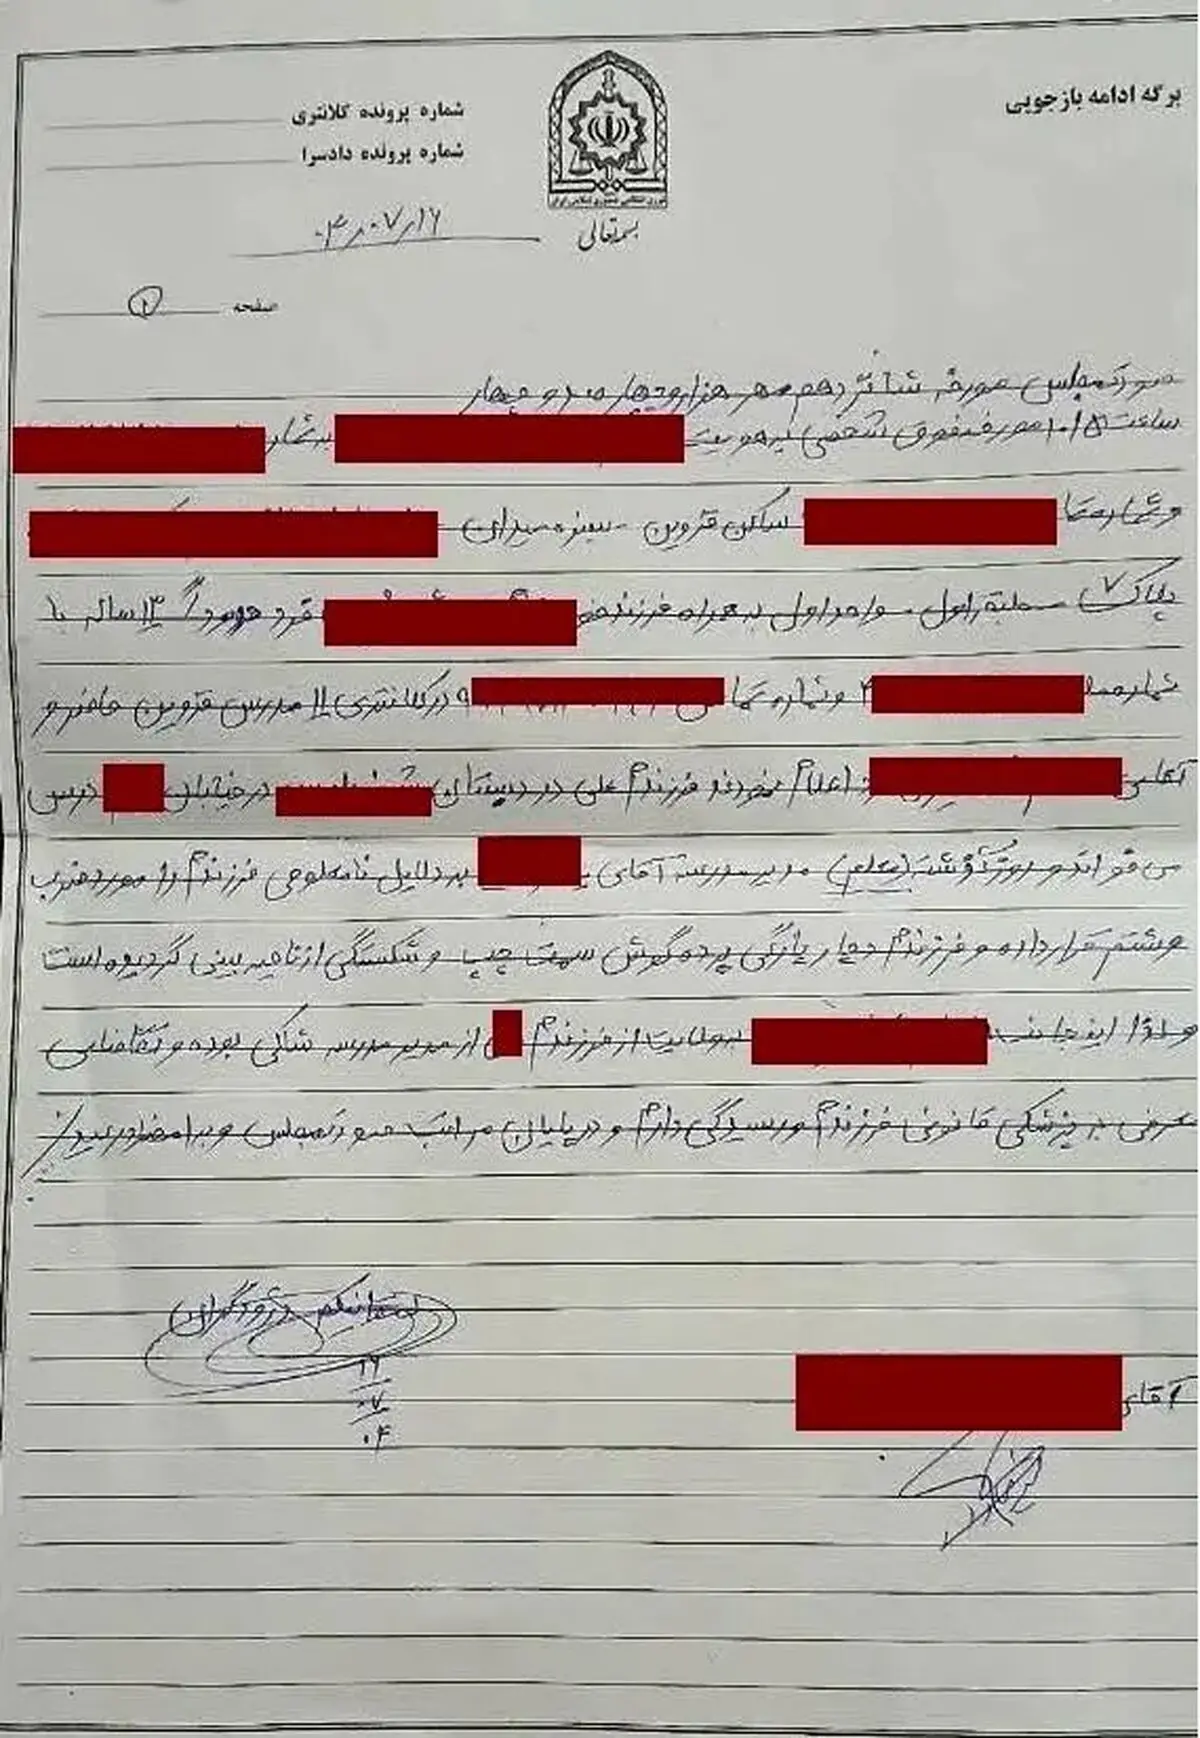 برگه ادامه بازجویی
شماره پرونده کلانتری
شماره پرونده دادسرا
نیروی انتظامی جمهوری اسلامی ایران
بسمه‌تعالی
۰۴٫۰۷٫۱۶
صفحه ۱
صورتمجلس مورخه شانزدهم مهر هزار و چهار صد و چهار
ساعت ۱۰/۵ مورخه فوق شخصی به هویت به شماره
و شماره تماس ساکن قزوین سبزه میدان
پلاک ۷ طبقه اول واحد اول به همراه فرزند خود ۱۳ ساله با
شماره و شماره تماس در کلانتری ۱۱ مدرس قزوین حاضر و
آقای اعلام نمودند فرزندم علی در دبستان در خیابان درس
می خواند و روز گذشته (معلم) مدیر مدرسه آقای به دلایل نامعلومی فرزندم را مورد ضرب
و شتم قرار داده و فرزندم دچار پارگی پرده گوش سمت چپ و شکستگی از ناحیه بینی گردیده است
و لذا اینجانب به ولایت از فرزندم از مدیر مدرسه شاکی بوده و تقاضای
معرفی به پزشکی قانونی فرزندم و رسیدگی دارم و در پایان مراتب صورتمجلس و به امضا رسید
۱۶
۰۷
۰۴
آقای